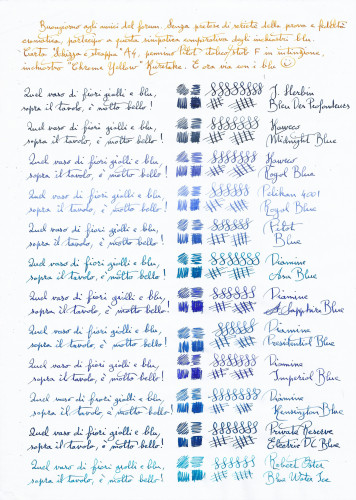 Buongiorno agli amici del forum. Senza pretese di velleità della prova e fedeltà
cromatica, partecipo a questa simpatica comparativa degli inchiostri blu.
Carta "Schizza e strappa" A4, pennino Pilot italic, stub F in intinzione,
inchiostro "Chrome Yellow" Kuretake. E ora via con i blu
Quel vaso di fiori gialli e blu,
sopra il tavolo, è molto bello!
J. Herbin
Bleu Des Profondeurs
Quel vaso di fiori gialli e blu,
sopra il tavolo, è molto bello!
Kaweco
Midnight Blue
Quel vaso di fiori gialli e blu,
sopra il tavolo, è molto bello!
Kaweco
Royal Blue
Quel vaso di fiori gialli e blu,
sopra il tavolo, è molto bello!
Pelikan 4001
Royal Blue
Quel vaso di fiori gialli e blu,
sopra il tavolo, è molto bello!
Pilot
Blue
Quel vaso di fiori gialli e blu,
sopra il tavolo, è molto bello!
Diamine
Asa Blue
Quel vaso di fiori gialli e blu,
sopra il tavolo, è molto bello!
Diamine
Sapphire Blue
Quel vaso di fiori gialli e blu,
sopra il tavolo, è molto bello!
Diamine
Presidential Blue
Quel vaso di fiori gialli e blu,
sopra il tavolo, è molto bello!
Diamine
Imperial Blue
Quel vaso di fiori gialli e blu,
sopra il tavolo, è molto bello!
Diamine
Kensington Blue
Quel vaso di fiori gialli e blu,
sopra il tavolo, è molto bello!
Private Reserve
Electric DC Blue
Quel vaso di fiori gialli e blu,
sopra il tavolo, è molto bello!
Robert Oster
Blue Water Ice